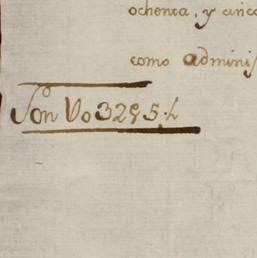 ochenta, y cinco
como adminis
Son Uo 3295 L